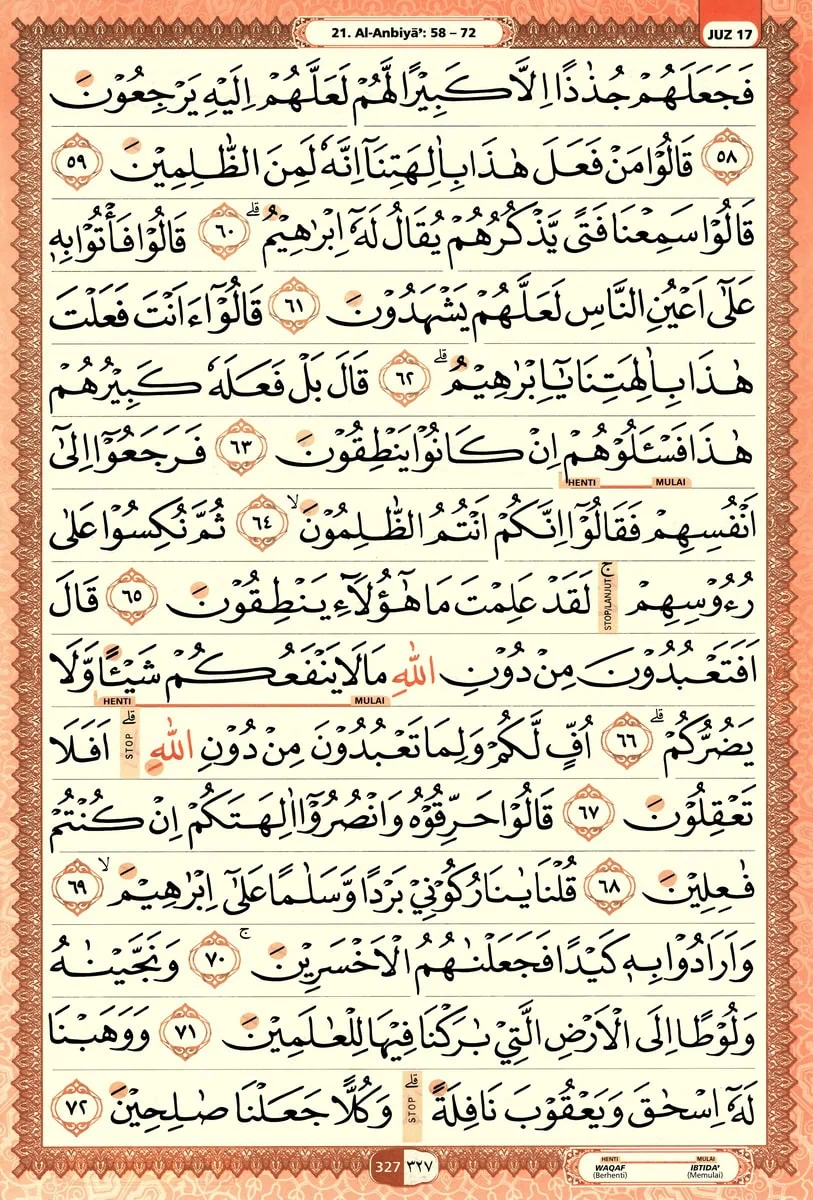 21. Al-Anbiyā': 58 – 72
JUZ 17
فَجَعَلَهُمْ جُذٰذًا اِلَّا كَبِيْرًا لَّهُمْ لَعَلَّهُمْ اِلَيْهِ يَرْجِعُوْنَ
٥٨ قَالُوْا مَنْ فَعَلَ هٰذَا بِاٰلِهَتِنَآ اِنَّهٗ لَمِنَ الظّٰلِمِيْنَ ٥٩
قَالُوْا سَمِعْنَا فَتًى يَّذْكُرُهُمْ يُقَالُ لَهٗٓ اِبْرٰهِيْمُ ۗ ٦٠ قَالُوْا فَأْتُوْا بِهٖ
عَلٰٓى اَعْيُنِ النَّاسِ لَعَلَّهُمْ يَشْهَدُوْنَ ٦١ قَالُوْٓا ءَاَنْتَ فَعَلْتَ
هٰذَا بِاٰلِهَتِنَا يٰٓاِبْرٰهِيْمُ ۗ ٦٢ قَالَ بَلْ فَعَلَهٗ كَبِيْرُهُمْ
هٰذَا فَسْـَٔلُوْهُمْ اِنْ كَانُوْا يَنْطِقُوْنَ ٦٣ فَرَجَعُوْٓا اِلٰٓى
HENTI MULAI
اَنْفُسِهِمْ فَقَالُوْٓا اِنَّكُمْ اَنْتُمُ الظّٰلِمُوْنَ ۙ ٦٤ ثُمَّ نُكِسُوْا عَلٰى
رُءُوْسِهِمْ ۚ STOP/LANJUT لَقَدْ عَلِمْتَ مَا هٰٓؤُلَاۤءِ يَنْطِقُوْنَ ٦٥ قَالَ
اَفَتَعْبُدُوْنَ مِنْ دُوْنِ اللّٰهِ مَا لَا يَنْفَعُكُمْ شَيْـًٔا وَّلَا
HENTI MULAI
يَضُرُّكُمْ ۗ ٦٦ اُفٍّ لَّكُمْ وَلِمَا تَعْبُدُوْنَ مِنْ دُوْنِ اللّٰهِ ۗ STOP اَفَلَا
تَعْقِلُوْنَ ٦٧ قَالُوْا حَرِّقُوْهُ وَانْصُرُوْٓا اٰلِهَتَكُمْ اِنْ كُنْتُمْ
فٰعِلِيْنَ ٦٨ قُلْنَا يٰنَارُ كُوْنِيْ بَرْدًا وَّسَلٰمًا عَلٰٓى اِبْرٰهِيْمَ ۙ ٦٩
وَاَرَادُوْا بِهٖ كَيْدًا فَجَعَلْنٰهُمُ الْاَخْسَرِيْنَ ۚ ٧٠ وَنَجَّيْنٰهُ
وَلُوْطًا اِلَى الْاَرْضِ الَّتِيْ بٰرَكْنَا فِيْهَا لِلْعٰلَمِيْنَ ٧١ وَوَهَبْنَا
لَهٗٓ اِسْحٰقَ وَيَعْقُوْبَ نَافِلَةً ۗ STOP وَكُلًّا جَعَلْنَا صٰلِحِيْنَ ٧٢
327 ٣٢٧
HENTI MULAI
WAQAF IBTIDA'
(Berhenti) (Memulai)